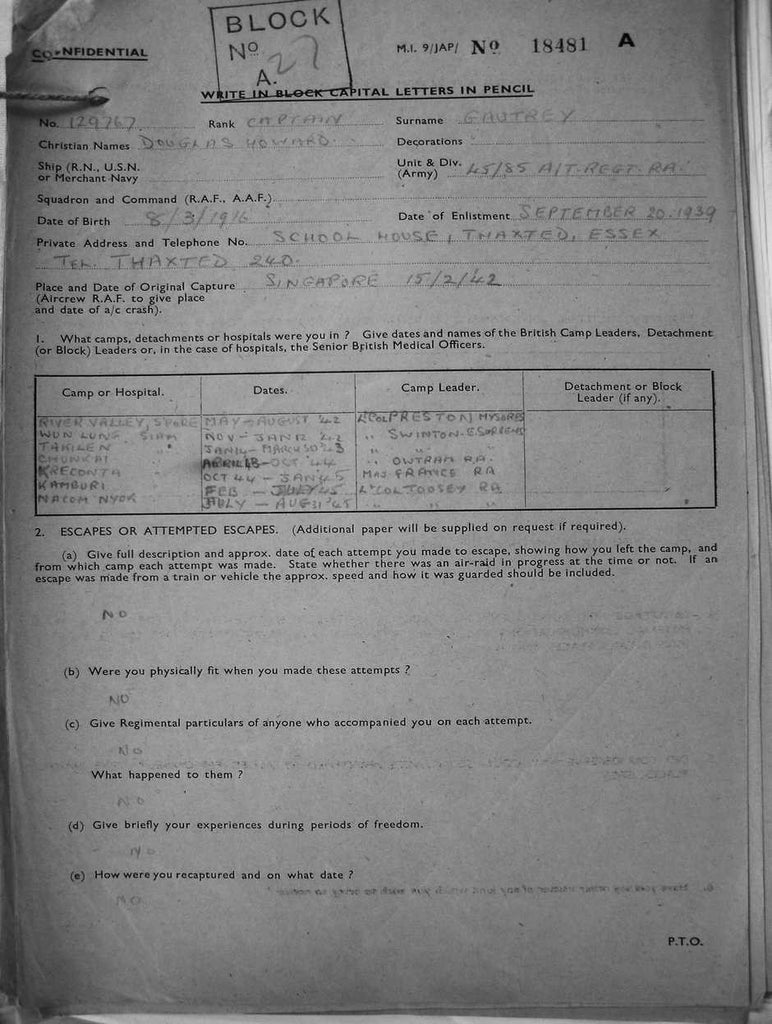 BLOCK
Nº 27
A.
CONFIDENTIAL
M.I. 9/JAP/ Nº 18481 A
WRITE IN BLOCK CAPITAL LETTERS IN PENCIL
No. 129767 Rank CAPTAIN Surname GAUTREY
Christian Names DOUGLAS HOWARD Decorations
Ship (R.N., U.S.N. or Merchant Navy
Unit & Div. (Army) 45/85 A/T. REGT. RA.
Squadron and Command (R.A.F., A.A.F.)
Date of Birth 8/3/1916 Date of Enlistment SEPTEMBER 20. 1939
Private Address and Telephone No. SCHOOL HOUSE, THAXTED, ESSEX
TEL. THAXTED 240.
Place and Date of Original Capture SINGAPORE 15/2/42
(Aircrew R.A.F. to give place
and date of a/c crash).
1. What camps, detachments or hospitals were you in ? Give dates and names of the British Camp Leaders, Detachment
(or Block) Leaders or, in the case of hospitals, the Senior British Medical Officers.
Camp or Hospital. Dates. Camp Leader. Detachment or Block Leader (if any).
RIVER VALLEY, S'PORE MAY - AUGUST 42 LT COL PRESTON, MYSORES
WUN LUNG SIAM NOV - JAN 12 " SWINTON
TAKILEN " MARCH 30
CHUNKAI APRIL - OCT 44 " OWTRAM RA.
KRECONTA OCT 44 - JAN 45 MAJ FRANCE RA
KAMBURI FEB - JULY 45 LT COL TOOSEY RA
NACOM NYOK JULY - AUG 31 '45 " "
2. ESCAPES OR ATTEMPTED ESCAPES. (Additional paper will be supplied on request if required).
(a) Give full description and approx. date of each attempt you made to escape, showing how you left the camp, and
from which camp each attempt was made. State whether there was an air-raid in progress at the time or not. If an
escape was made from a train or vehicle the approx. speed and how it was guarded should be included.
NO
(b) Were you physically fit when you made these attempts ?
NO
(c) Give Regimental particulars of anyone who accompanied you on each attempt.
NO
What happened to them ?
NO
(d) Give briefly your experiences during periods of freedom.
NO
(e) How were you recaptured and on what date ?
NO
P.T.O.